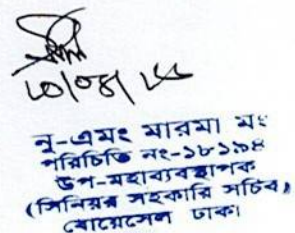 নু-এমং মারমা মং
পরিচিতি নং-১৮১৯৪
উপ-মহাব্যবস্থাপক
(সিনিয়র সহকারি সচিব)
বোয়েসেল ঢাকা।